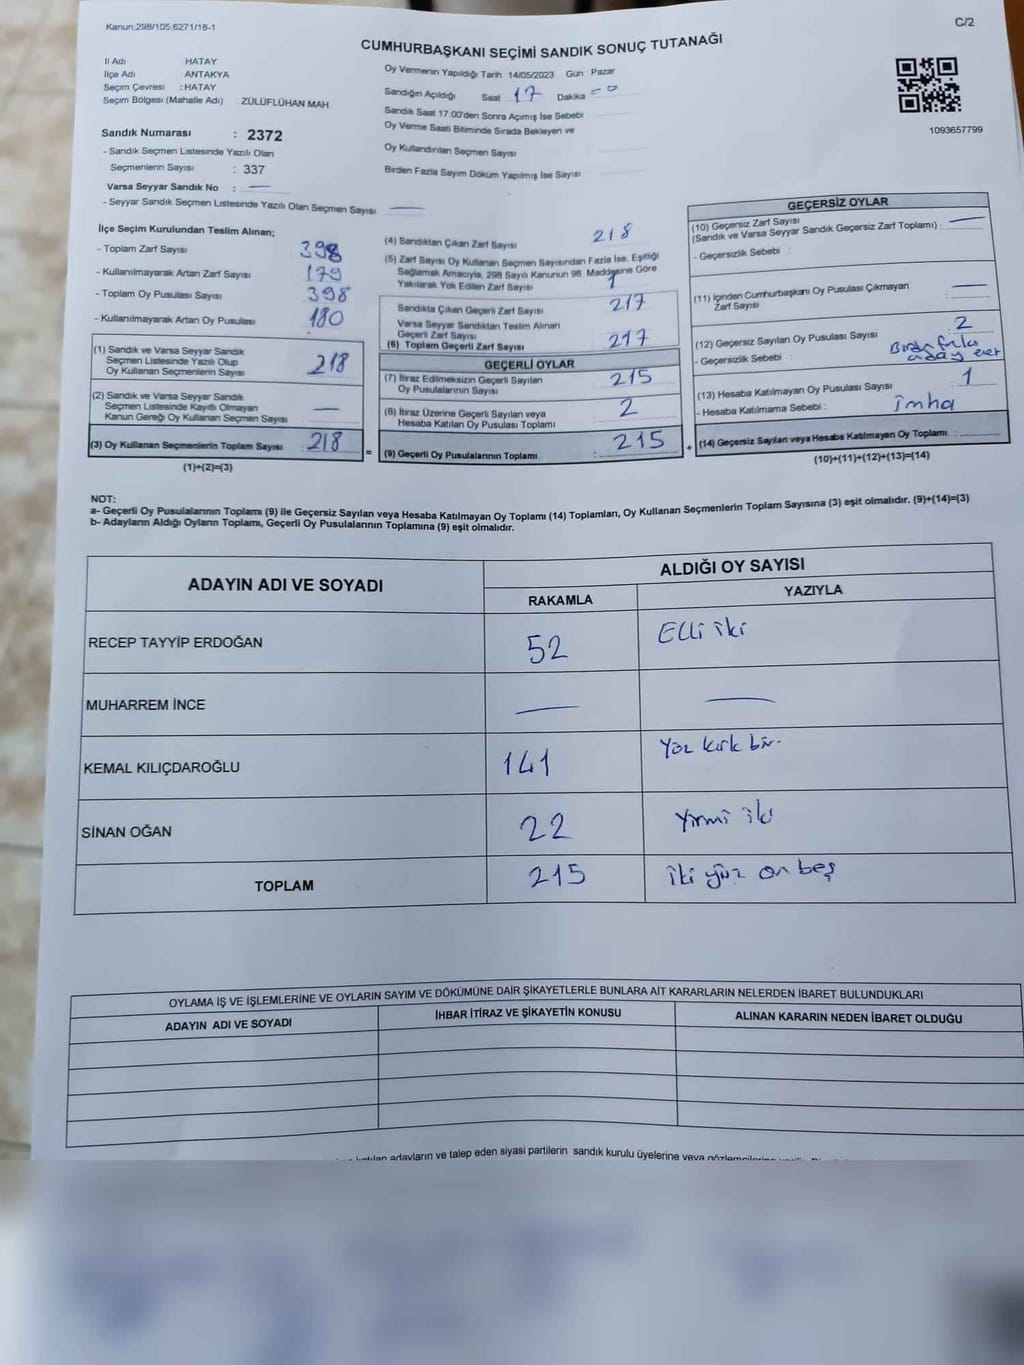 Kanun:298/105;6271/18-1
C/2
CUMHURBAŞKANI SEÇİMİ SANDIK SONUÇ TUTANAĞI
İl Adı HATAY
İlçe Adı ANTAKYA
Seçim Çevresi : HATAY
Seçim Bölgesi (Mahalle Adı) : ZÜLÜFLÜHAN MAH.
Sandık Numarası : 2372
- Sandık Seçmen Listesinde Yazılı Olan
Seçmenlerin Sayısı : 337
Varsa Seyyar Sandık No : —
- Seyyar Sandık Seçmen Listesinde Yazılı Olan Seçmen Sayısı —
Oy Vermenin Yapıldığı Tarih 14/05/2023 Gün : Pazar
Sandığın Açıldığı Saat 17 Dakika 00
Sandık Saat 17:00'den Sonra Açımış İse Sebebi
Oy Verme Saati Bitiminde Sırada Bekleyen ve
Oy Kullandırılan Seçmen Sayısı
Birden Fazla Sayım Döküm Yapılmış İse Sayısı
1093657799
İlçe Seçim Kurulundan Teslim Alınan;
- Toplam Zarf Sayısı 398
- Kullanılmayarak Artan Zarf Sayısı 179
- Toplam Oy Pusulası Sayısı 398
- Kullanılmayarak Artan Oy Pusulası 180
(1) Sandık ve Varsa Seyyar Sandık
Seçmen Listesinde Yazılı Olup
Oy Kullanan Seçmenlerin Sayısı 218
(2) Sandık ve Varsa Seyyar Sandık
Seçmen Listesinde Kayıtlı Olmayan
Kanun Gereği Oy Kullanan Seçmen Sayısı —
(3) Oy Kullanan Seçmenlerin Toplam Sayısı : 218 =
(1)+(2)=(3)
(4) Sandıktan Çıkan Zarf Sayısı 218
(5) Zarf Sayısı Oy Kullanan Seçmen Sayısından Fazla İse, Eşitliği
Sağlamak Amacıyla, 298 Sayılı Kanunun 98. Maddesine Göre
Yakılarak Yok Edilen Zarf Sayısı 1
Sandıkta Çıkan Geçerli Zarf Sayısı 217
Varsa Seyyar Sandıktan Teslim Alınan
Geçerli Zarf Sayısı
(6) Toplam Geçerli Zarf Sayısı 217
GEÇERLİ OYLAR
(7) İtiraz Edilmeksizin Geçerli Sayılan
Oy Pusulalarının Sayısı 215
(8) İtiraz Üzerine Geçerli Sayılan veya
Hesaba Katılan Oy Pusulası Toplamı 2
(9) Geçerli Oy Pusulalarının Toplamı : 215 +
GEÇERSİZ OYLAR
(10) Geçersiz Zarf Sayısı
(Sandık ve Varsa Seyyar Sandık Geçersiz Zarf Toplamı) : —
- Geçersizlik Sebebi :
(11) İçinden Cumhurbaşkanı Oy Pusulası Çıkmayan
Zarf Sayısı : —
(12) Geçersiz Sayılan Oy Pusulası Sayısı : 2
- Geçersizlik Sebebi : Birden fazla
aday evet
(13) Hesaba Katılmayan Oy Pusulası Sayısı : 1
- Hesaba Katılmama Sebebi : imha
(14) Geçersiz Sayılan veya Hesaba Katılmayan Oy Toplamı :
(10)+(11)+(12)+(13)=(14)
NOT:
a- Geçerli Oy Pusulalarının Toplamı (9) ile Geçersiz Sayılan veya Hesaba Katılmayan Oy Toplamı (14) Toplamları, Oy Kullanan Seçmenlerin Toplam Sayısına (3) eşit olmalıdır. (9)+(14)=(3)
b- Adayların Aldığı Oyların Toplamı, Geçerli Oy Pusulalarının Toplamına (9) eşit olmalıdır.
ADAYIN ADI VE SOYADI ALDIĞI OY SAYISI
RAKAMLA YAZIYLA
RECEP TAYYİP ERDOĞAN 52 Elli iki
MUHARREM İNCE — —
KEMAL KILIÇDAROĞLU 141 Yüz kırk bir
SİNAN OĞAN 22 Yirmi iki
TOPLAM 215 iki yüz on beş
OYLAMA İŞ VE İŞLEMLERİNE VE OYLARIN SAYIM VE DÖKÜMÜNE DAİR ŞİKAYETLERLE BUNLARA AİT KARARLARIN NELERDEN İBARET BULUNDUKLARI
ADAYIN ADI VE SOYADI İHBAR İTİRAZ VE ŞİKAYETİN KONUSU ALINAN KARARIN NEDEN İBARET OLDUĞU
katılan adayların ve talep eden siyasi partilerin sandık kurulu üyelerine veya gözlemcilerine